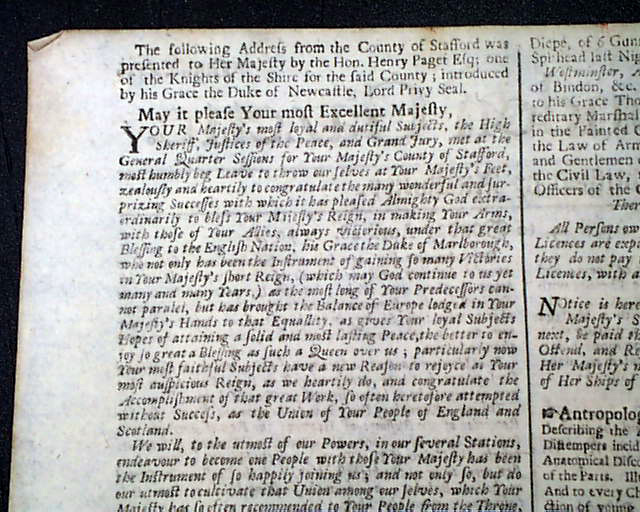 The following Address from the County of Stafford was
presented to Her Majesty by the Hon. Henry Paget Esq; one
of the Knights of the Shire for the said County; introduced
by his Grace the Duke of Newcastle, Lord Privy Seal.
May it please Your most Excellent Majesty,
YOUR Majesty's most loyal and dutiful Subjects, the High
Sheriff, Justices of the Peace, and Grand Jury, met at the
General Quarter Sessions for Your Majesty's County of Stafford,
most humbly beg Leave to throw our selves at Your Majesty's Feet,
zealously and heartily to congratulate the many wonderful and sur-
prizing Successes with which it has pleased Almighty God extra-
ordinarily to bless Your Majesty's Reign, in making Your Arms,
with those of Your Allies, always victorious, under that great
Blessing to the English Nation, his Grace the Duke of Marlborough,
who not only has been the Instrument of gaining so many Victories
in Your Majesty's short Reign, (which may God continue to us yet
many and many Years,) as the most long of Your Predecessors can-
not paralel, but has brought the Balance of Europe lodged in Your
Majesty's Hands to that Equality, as gives Your loyal Subjects
Hopes of attaining a solid and most lasting Peace, the better to en-
joy so great a Blessing as such a Queen over us; particularly now
Your most faithful Subjects have a new Reason to rejoyce in Your
most auspicious Reign, as we heartily do, and congratulate the
Accomplishment of that great Work, so often heretofore attempted
without Success, as the Union of Your People of England and
Scotland.
We will, to the utmost of our Powers, in our several Stations,
endeavour to become one People with those Your Majesty has been
the Instrument of so happily joining us; and not only so, but do
our utmost to cultivate that Union among our selves, which Your
Majesty has so often recommended to Your People from the Throne,
Diepe, of 6 Gun
Spithead last Nig
Westminster,
of Bindon, &c.
to his Grace Th
reditary Marshal
in the Painted
the Law of Arm
and Gentlemen
the Civil Law,
Officers of the
Ther
All Persons ow
Licences are exp
they do not pay
Licences, with a
NOtice is here
Majesty's S
next, be paid th
Offend, and R
Her Majesty's n
of Her Ships of
☞ Antropolog
Describing the
Distempers incid
Anatomical Disc
of the Parts. Ill
And to every Ch
ction of young